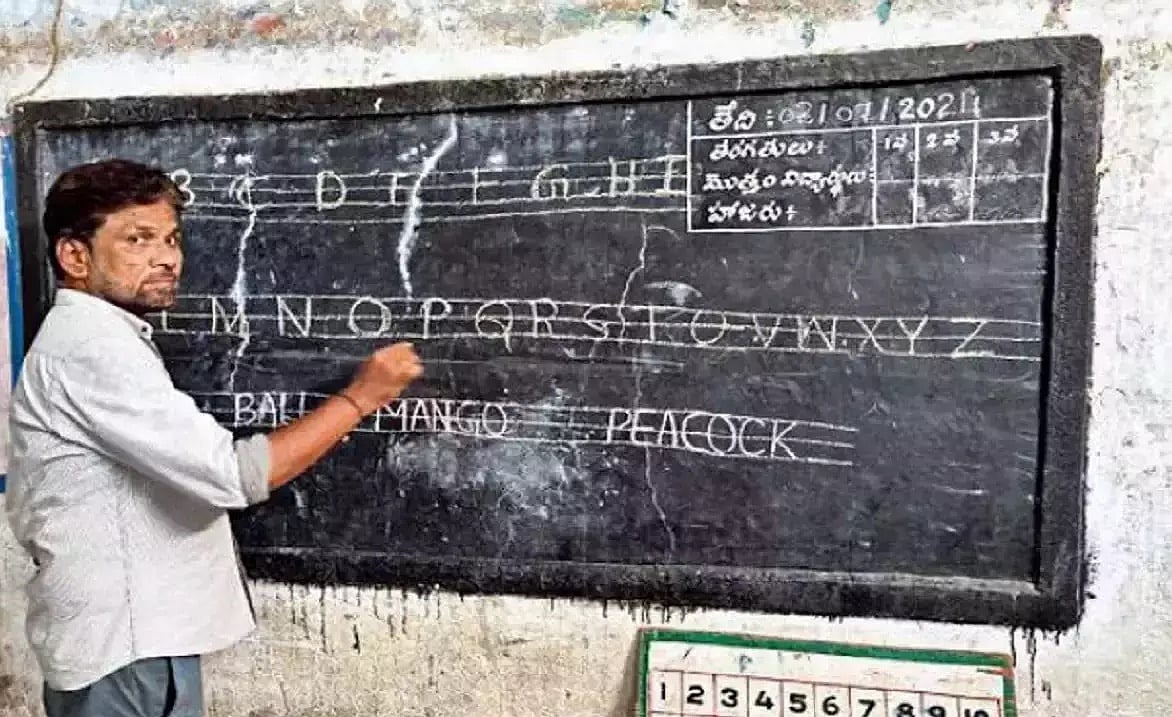 తేది :
తరగతులు : 1వ 2వ 3వ
మొత్తం విద్యార్థులు :
హాజరు :
B C D E F G H I
L M N O P Q R S T U V W X Y Z
BALL MANGO PEACOCK
1 2 3 4 5 6 7 8 9 10